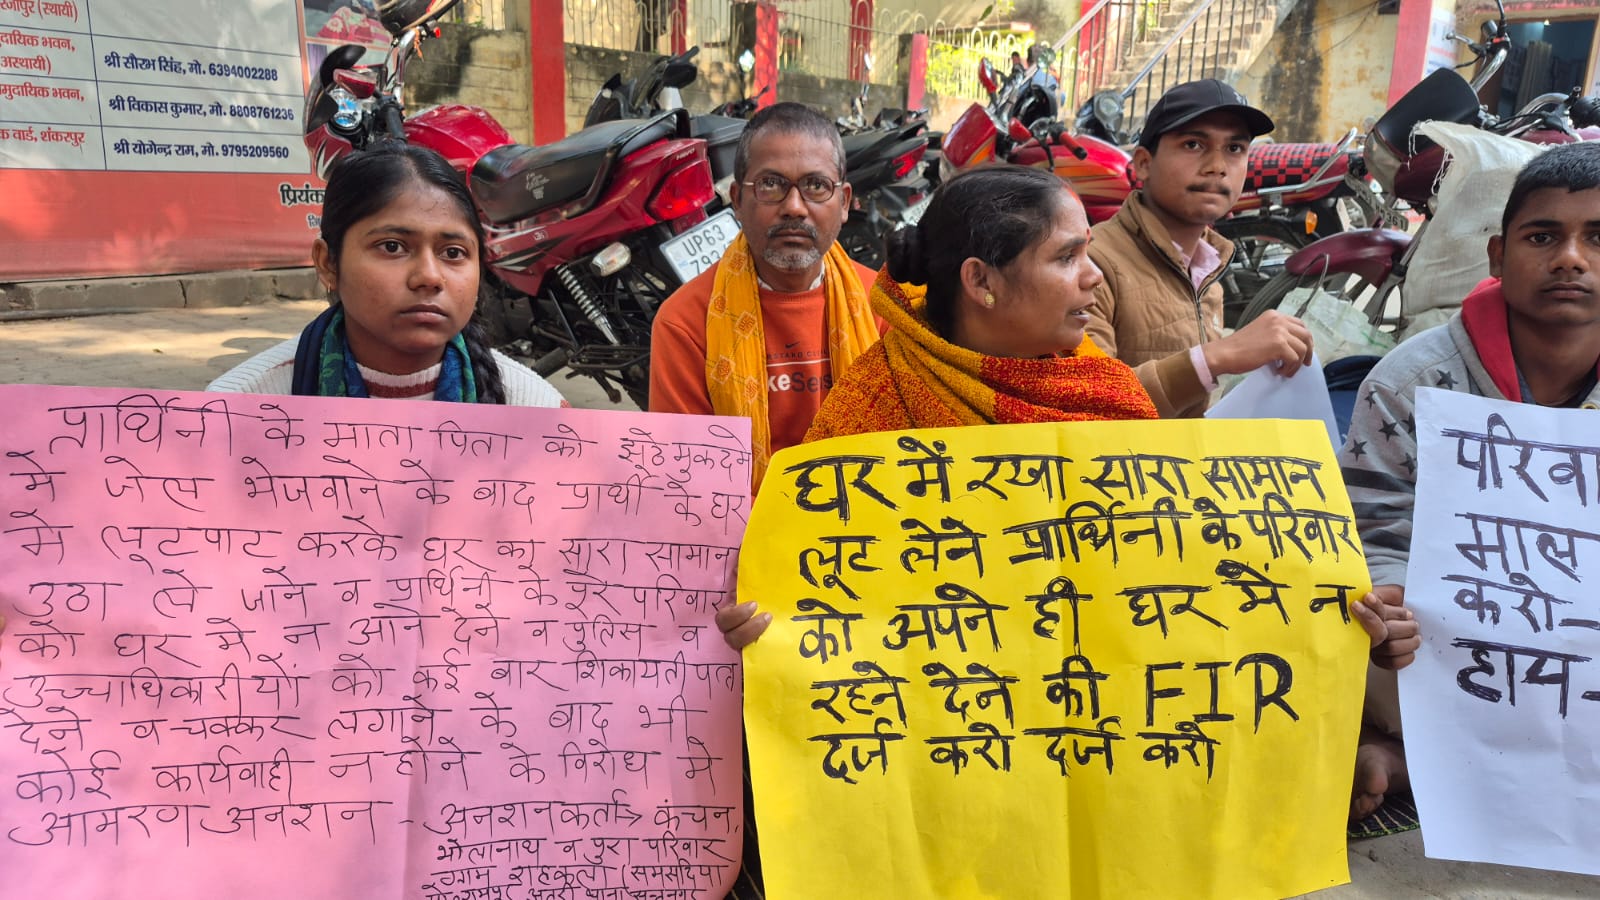 रजापुर (स्थायी)
मुदायिक भवन,
अस्थायी)
श्री सौरभ सिंह, मो. 6394002288
मुदायिक भवन,
श्री विकास कुमार, मो. 8808761236
क वार्ड, शंकरपुर
श्री योगेन्द्र राम, मो. 9795209560
प्रियंक
UP63
प्रार्थिनी के माता पिता को झूठे मुकदमे
मे जेल भेजवाने के बाद प्रार्थी के घर
मे लूटपाट करके घर का सारा सामान
उठा ले जाने व प्रार्थिनी के पूरे परिवार
को घर मे न आने देने व पुलिस व
उच्चाधिकारीयों को कई बार शिकायती पत्र
देने व चक्कर लगाने के बाद भी
कोई कार्यवाही न होने के विरोध मे
आमरण अनशन - अनशनकर्ता→ कंचन,
भोलानाथ व पुरा परिवार
घर में रखा सारा सामान
लूट लेने प्रार्थिनी के परिवार
को अपने ही घर में न
रहने देने की FIR
दर्ज करो दर्ज करो
परिवा
माल
करो-
हाय-